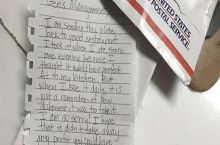 Gen's Management,
I am sending this plate
back to your restaurant.
I took it when I ate there
one evening because I
thought it would be perfect
in my kitchen. But
when I see it daily, it is
just a reminder of how
dishonest it was to take it
I am so sorry. I hope
that it didn't take away
any profit you could have
UNITED STATES
POSTAL SERVICE